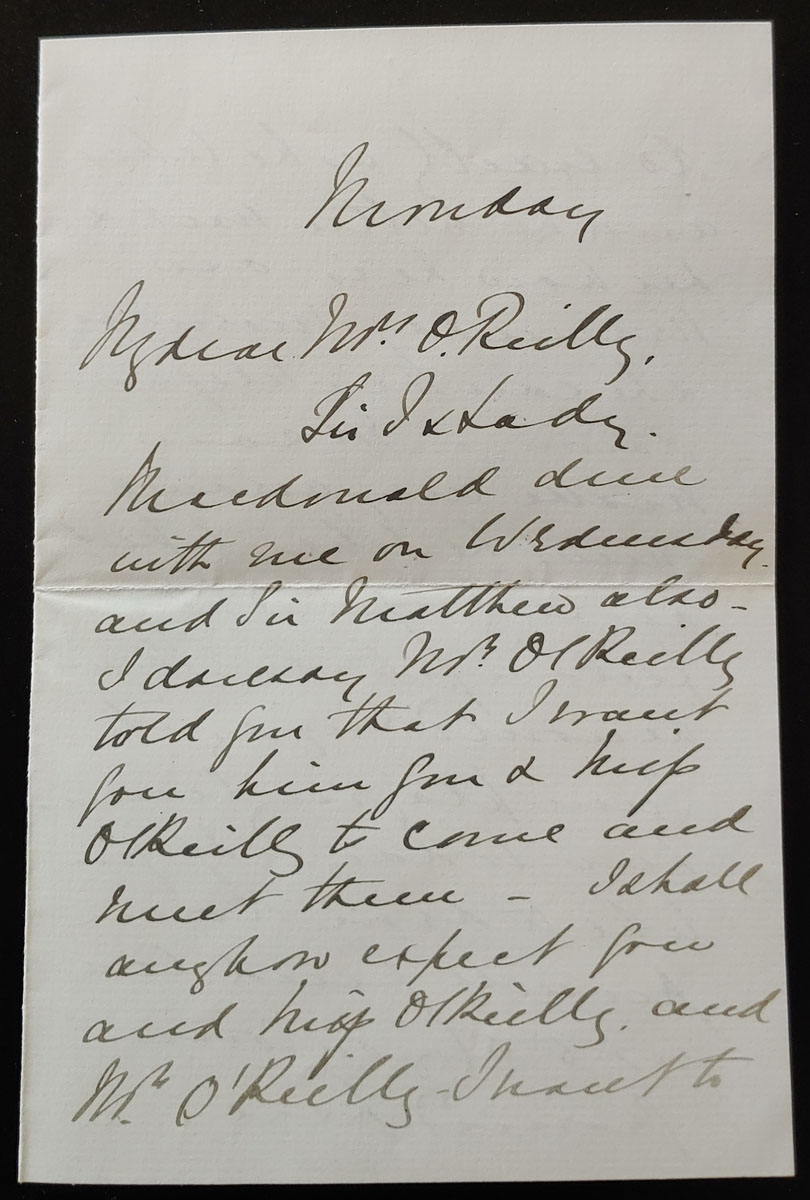 Monday
My dear Mrs. O'Reilly,
Sir J & Lady
Macdonald dine
with me on Wednesday
and Sir Matthew also -
I daresay Mr. O'Reilly
told you that I want
you him you & Miss
O'Reilly to come and
meet them - I shall
anyhow expect you
and Miss O'Reilly, and
Mr. O'Reilly - I want to